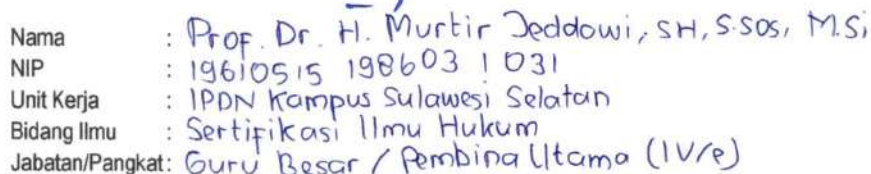 Nama : Prof. Dr. H. Murtir Jeddawi, SH, S.Sos, M.Si
NIP : 19610515 198603 1 031
Unit Kerja : IPDN Kampus Sulawesi Selatan
Bidang Ilmu : Sertifikasi Ilmu Hukum
Jabatan/Pangkat: Guru Besar / Pembina Utama (IV/e)